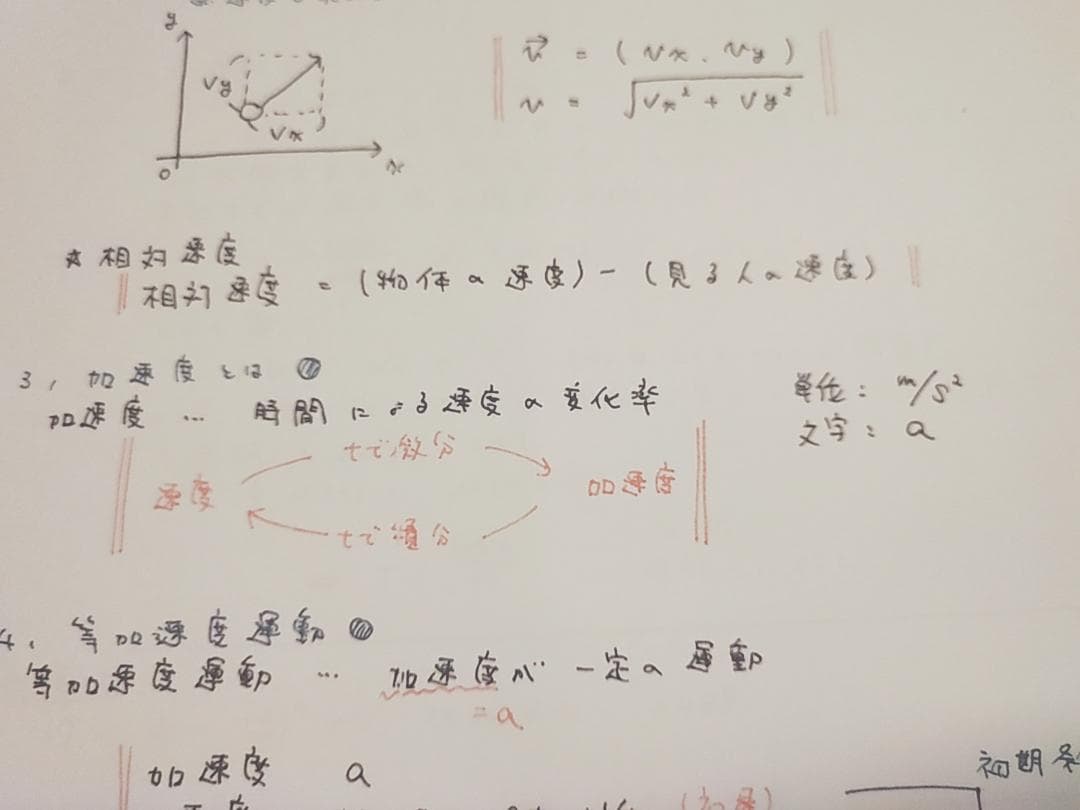 y
Vy
Vx
0
x
v⃗ = (Vx, Vy)
v = √Vx² + Vy²
☆相対速度
相対速度 = (物体の速度) − (見る人の速度)
3, 加速度とは
加速度 … 時間による速度の変化率
単位: m/s²
文字: a
tで微分
速度 加速度
tで積分
4. 等加速度運動
等加速度運動 … 加速度が一定の運動
= a
加速度 a
初期条